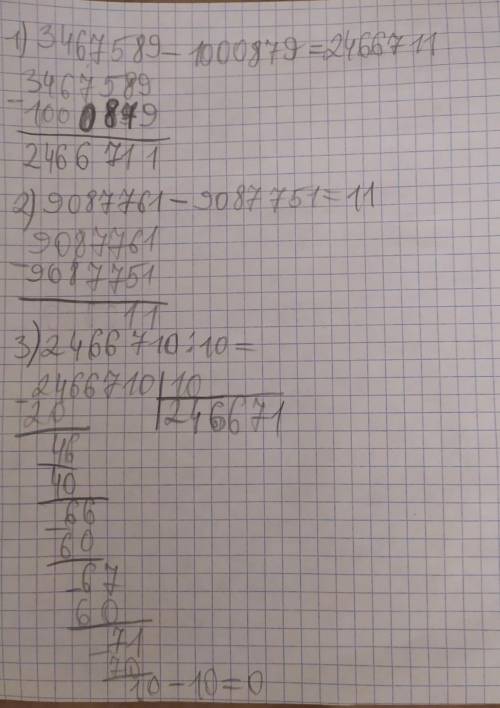 1) 3467589 - 1000879 = 2466711
3467589
- 1000879
2466711
2) 9087761 - 9087751 = 11
9087761
- 9087751
11
3) 2466710 : 10 =
- 2466710 | 10
20 | 246671
46
40
- 66
60
- 67
60
- 71
70
10 - 10 = 0